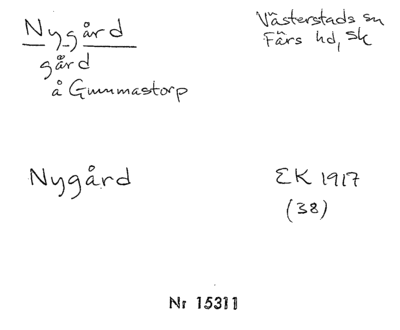 Nygård
Västerstads sn
Färs hd, Sk
gård
å Gummastorp
Nygård
EK 1917
(38)
Nr 15311